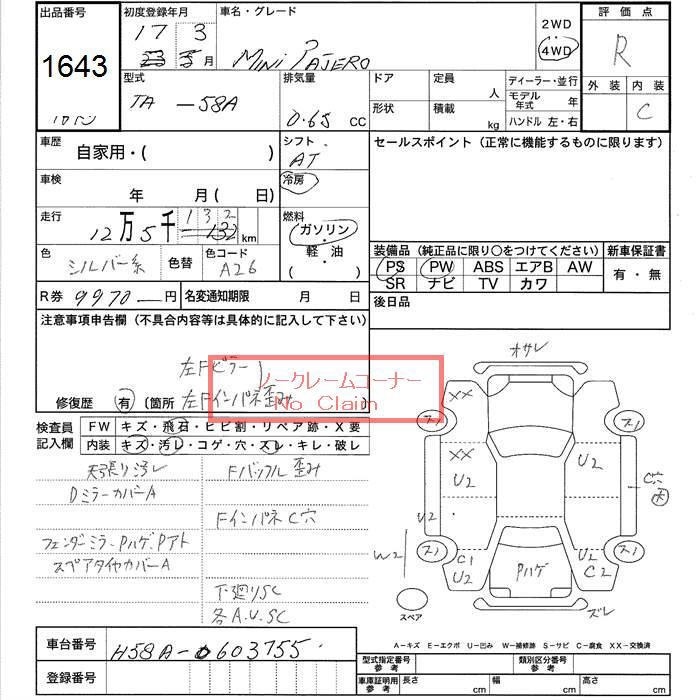 出品番号
1643
初度登録年月
17 3
月
車名・グレード
MINI PAJERO
2WD
4WD
評価点
R
外装 内装
C
型式
TA -58A
排気量
0.65 CC
ドア
形状
定員
人
積載
kg
ディーラー・並行
モデル年式 年
ハンドル 左・右
車歴
自家用・( )
シフト
AT
セールスポイント（正常に機能するものに限ります）
車検
年 月( 日)
冷房
走行
12万5千132km
燃料
ガソリン
・
軽・油
( )
色
シルバー系
色替
色コード
A26
装備品（純正品に限り○をつけてください）
新車保証書
PS PW ABS エアB AW
SR ナビ TV カワ
有・無
R券 9970 円
名変通知期限 月 日
後日品
注意事項申告欄（不具合内容等は具体的に記入して下さい）
左Fピラー
ノークレームコーナー
No Claim
修復歴 有〔箇所 左Fインパネ歪み
検査員記入欄
FW キズ・飛石・ヒビ割・リペア跡・X要
内装 キズ・汚レ・コゲ・穴・スレ・キレ・破レ
天張り汚レ
Fバッフル歪み
DミラーカバーA
FインパネC穴
フェンダーミラーPハゲ、Pアト
スペアタイヤカバーA
下廻りSC
各A.U.SC
オサレ
XX
スノ
スノ
XX
U2
U2
C穴
大
U2
W2
スノ
C1
U2
Pハゲ
U2
C2
スノ
スペア
ズレ
A－キズ E－エクボ U－凹み W－補修跡 S－サビ C－腐食 XX－交換済
車台番号
H58A-0603755
登録番号
型式指定番号
参考
類別区分番号
参考
車庫証明用
参考
長さ cm
幅 cm
高さ cm